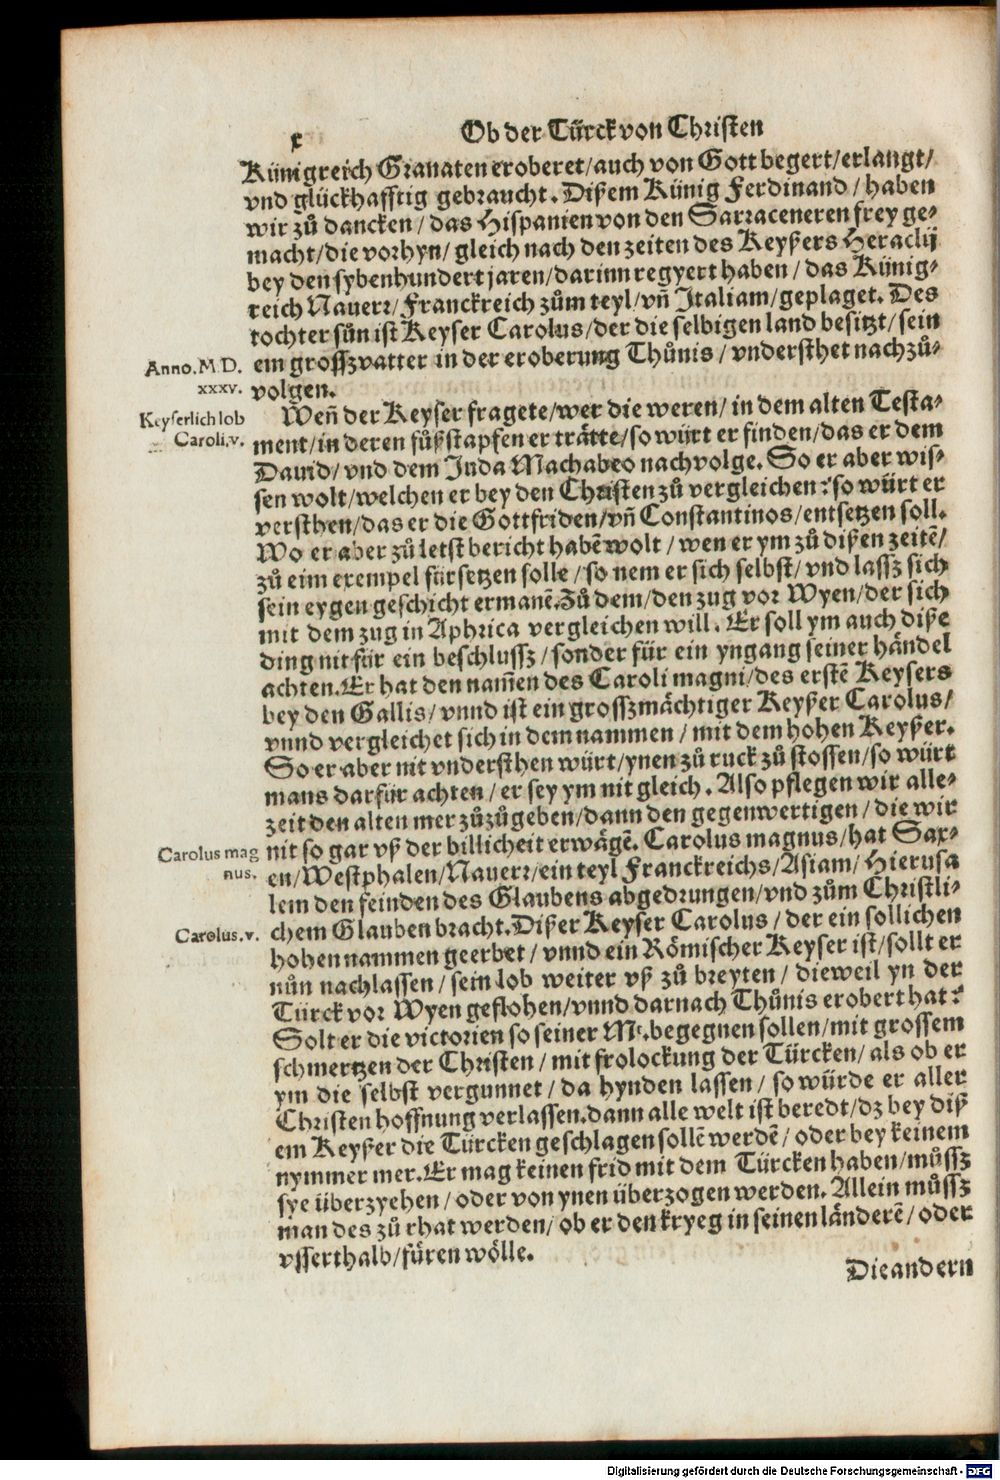 x
Ob der Türck von Christen
Künigreich Granaten eroberet/auch von Gott begert/erlangt/
vnd glückhafftig gebraucht. Dißem Künig Ferdinand/haben
wir zů dancken/das Hispanien von den Sarraceneren frey ge⸗
macht/die vorhyn/gleich nach den zeiten des Keyßers Heraclij
bey den sybenhundert jaren/darinn regyert haben/das Künig⸗
reich Nauerr/Franckreich zům teyl/vñ Italiam/geplaget. Des
tochter sůn ist Keyser Carolus/der die selbigen land besitzt/sein
Anno. M D.
ein grosszvatter in der eroberung Thůnis/vndersthet nachzů⸗
xxxv.
volgen.
Keyserlich lob
Weñ der Keyser fragete/wer die weren/in dem alten Testa⸗
Caroli.v.
ment/in deren fůßstapfen er trätte/so würt er finden/das er dem
Dauid/vnd dem Juda Machabeo nachvolge. So er aber wis⸗
sen wolt/welchen er bey den Christen zů vergleichen? so würt er
versthen/das er die Gottfriden/vñ Constantinos/entsetzen soll.
Wo er aber zů letst bericht habẽ wolt/wen er ym zů dißen zeitẽ/
zů eim exempel fürsetzen solle/so nem er sich selbst/vnd lassz sich
sein eygen geschicht ermanẽ. Zů dem/den zug vor Wyen/der sich
mit dem zug in Aphrica vergleichen will. Er soll ym auch diße
ding nit für ein beschlussz/sonder für ein yngang seiner händel
achten. Er hat den nam̃en des Caroli magni/des erstẽ Keysers
bey den Gallis/vnnd ist ein grosszmächtiger Keyßer Carolus/
vnnd vergleichet sich in dem nammen/mit dem hohen Keyßer.
So er aber nit vndersthen würt/ynen zů ruck zů stossen/so würt
mans darfür achten/er sey ym nit gleich. Also pflegen wir alle⸗
zeit den alten mer zůzůgeben/dann den gegenwertigen/die wir
Carolus mag
nit so gar vß der billicheit erwägẽ. Carolus magnus/hat Sax⸗
nus.
en/Westphalen/Nauerr/ein teyl Franckreichs/Asiam/Hierusa
lem den feinden des Glaubens abgedrungen/vnd zům Christli⸗
Carolus.v.
chem Glauben bracht. Dißer Keyser Carolus/der ein sollichen
hohen nammen geerbet/vnnd ein Römischer Keyser ist/sollt er
nůn nachlassen/sein lob weiter vß zů breyten/dieweil yn der
Türck vor Wyen geflohen/vnnd darnach Thůnis erobert hat?
Solt er die victorien so seiner M͞t. begegnen sollen/mit grossem
schmertzen der Christen/mit frolockung der Türcken/als ob er
ym die selbst vergunnet/da hynden lassen/so würde er aller
Christen hoffnung verlassen. dann alle welt ist beredt/dz bey diß
em Keyßer die Türcken geschlagen sollẽ werdẽ/oder bey keinem
nymmer mer. Er mag keinen frid mit dem Türcken haben/můssz
sye überzyehen/oder von ynen überzogen werden. Allein můssz
man des zů rhat werden/ob er den kryeg in seinen länderẽ/oder
vsserthalb/füren wölle.
Die andern
Digitalisierung gefördert durch die Deutsche Forschungsgemeinschaft - DFG